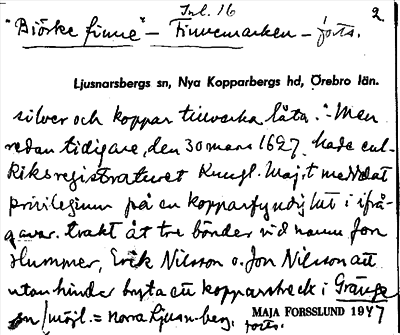 Inl. 16
2
"Björke finne" – Finnemarken – forts.
Ljusnarsbergs sn, Nya Kopparbergs hd, Örebro län.
silver och koppar tillverka låta." – Men
redan tidigare, den 30 mars 1627 hade enl.
Riksregistraturet Kungl. Maj:t meddelat
privilegium på en kopparfyndighet i ifrå-
gavar. trakt åt tre bönder vid namn Jon
Hummer, Erik Nilsson o. Jon Nilsson att
utan hinder bryta ett kopparstreck i Gränge
sn/möjl. = Nora Ljusn.berg. forts.
MAJA FORSSLUND 1947